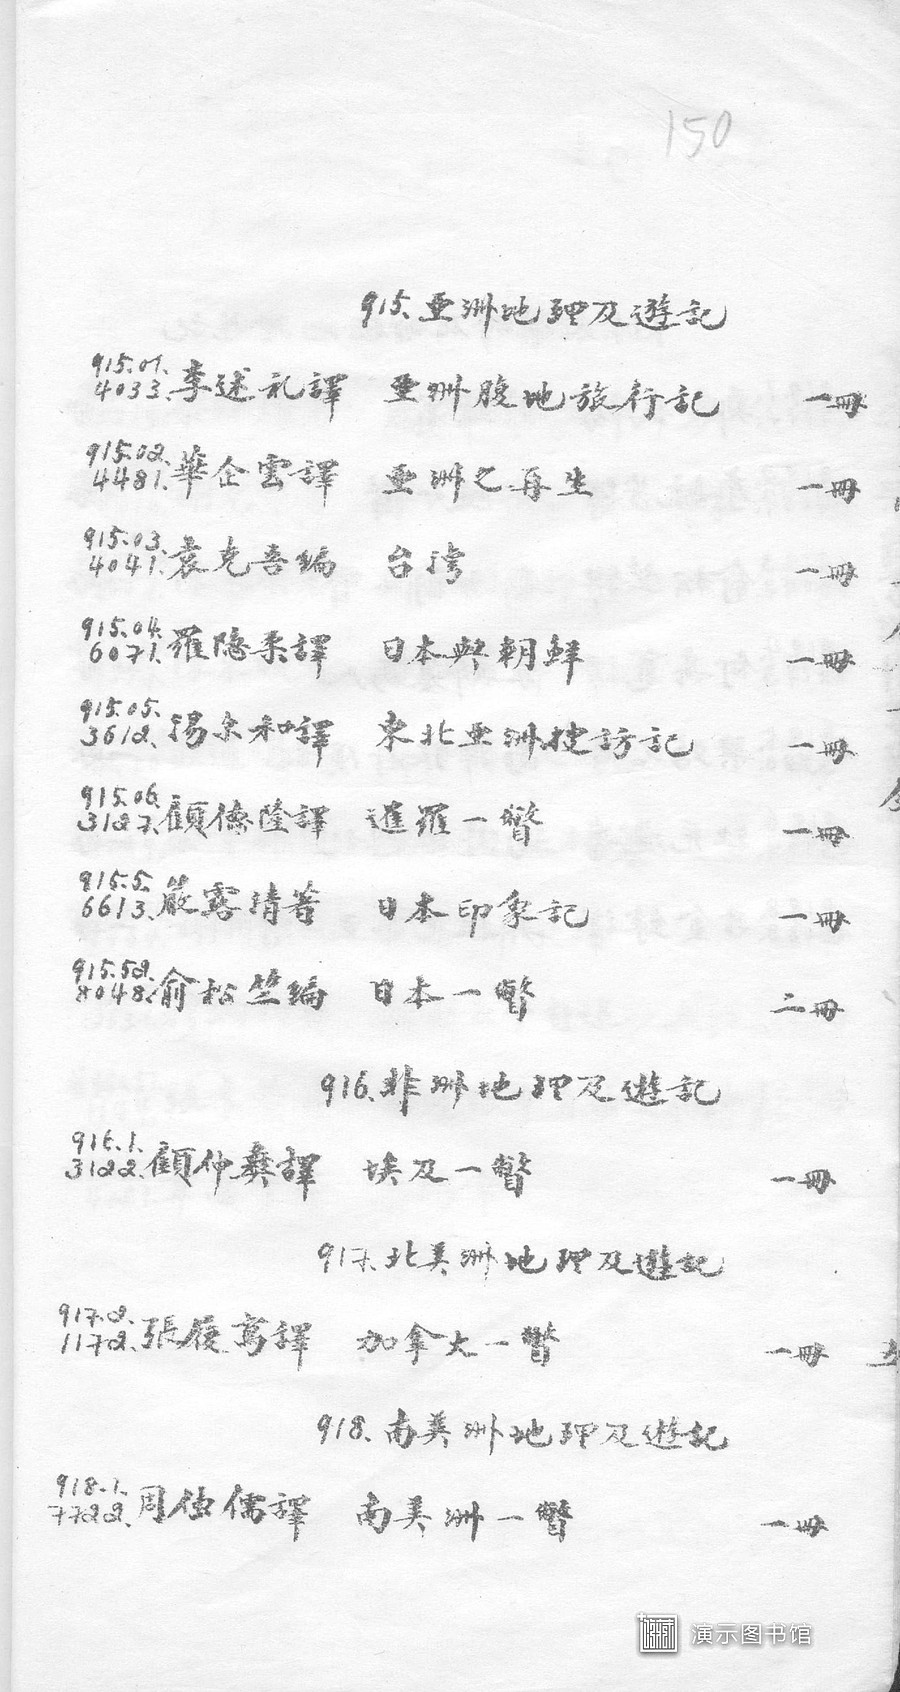 150
915. 亜洲地理及遊記
915.01.
4033. 李述礼譯 亜洲腹地旅行記 一冊
915.02.
4481. 華企雲譯 亜洲之再生 一冊
915.03.
4041. 袁克吾編 台湾 一冊
915.04.
6071. 羅隐柔譯 日本與朝鮮 一冊
915.05.
3612. 湯尔和譯 東北亜洲搜訪記 一冊
915.06.
3127. 顧德隆譯 暹羅一瞥 一冊
915.5.
6613. 嚴露清著 日本印象記 一冊
915.52.
8048. 俞松笠編 日本一瞥 二冊
916. 非洲地理及遊記
916.1.
3122. 顧仲彝譯 埃及一瞥 一冊
917. 北美洲地理及遊記
917.2.
1172. 張履鸾譯 加拿大一瞥 一冊
918. 南美洲地理及遊記
918.1.
7722. 周傎儒譯 南美洲一瞥 一冊
演示图书馆